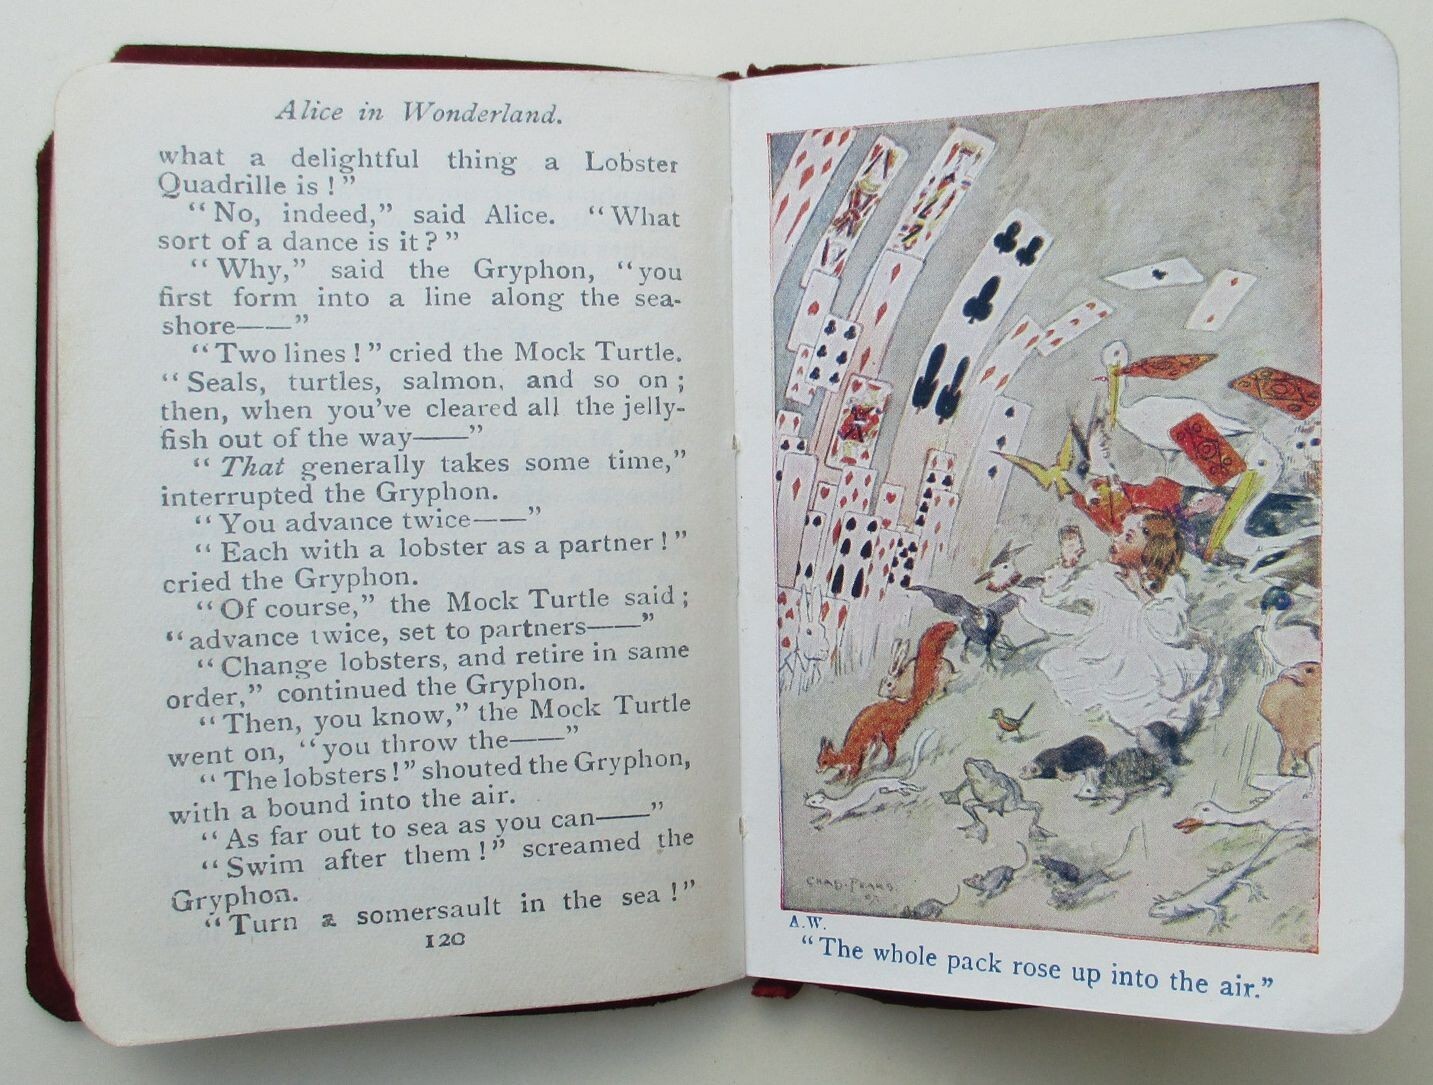 Alice in Wonderland.
what a delightful thing a Lobster
Quadrille is!"
"No, indeed," said Alice. "What
sort of a dance is it?"
"Why," said the Gryphon, "you
first form into a line along the sea-
shore——"
"Two lines!" cried the Mock Turtle.
"Seals, turtles, salmon, and so on;
then, when you've cleared all the jelly-
fish out of the way——"
"That generally takes some time,"
interrupted the Gryphon.
"You advance twice——"
"Each with a lobster as a partner!"
cried the Gryphon.
"Of course," the Mock Turtle said;
"advance twice, set to partners——"
"Change lobsters, and retire in same
order," continued the Gryphon.
"Then, you know," the Mock Turtle
went on, "you throw the——"
"The lobsters!" shouted the Gryphon,
with a bound into the air.
"As far out to sea as you can——"
"Swim after them!" screamed the
Gryphon.
"Turn a somersault in the sea!"
120
CHAS. PEARS.
A.W.
"The whole pack rose up into the air."